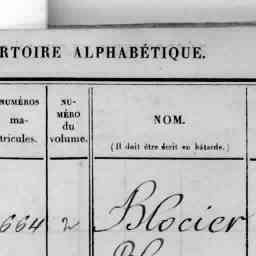 RTOIRE ALPHABÉTIQUE.
NUMÉROS
ma-
tricules.
NU-
MÉRO
du
volume.
NOM.
(Il doit être écrit en bâtarde.)
664 2 Blocier